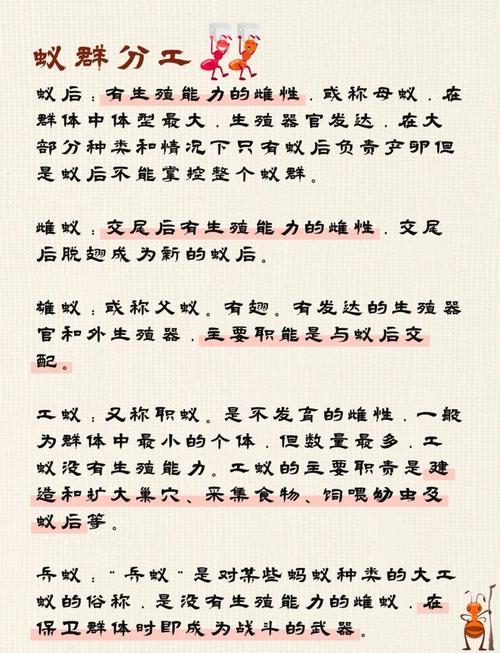 蚁群分工
蚁后：有生殖能力的雌性，或称母蚁，在
群体中体型最大，生殖器官发达，在大
部分种类和情况下只有蚁后负责产卵但
是蚁后不能掌控整个蚁群。
雌蚁：交尾后有生殖能力的雌性，交尾
后脱翅成为新的蚁后。
雄蚁：或称父蚁。有翅。有发达的生殖器
官和外生殖器，主要职能是与蚁后交
配。
工蚁：又称职蚁。是不发育的雌性，一般
为群体中最小的个体，但数量最多，工
蚁没有生殖能力。工蚁的主要职责是建
造和扩大巢穴、采集食物、饲喂幼虫及
蚁后等。
兵蚁："兵蚁"是对某些蚂蚁种类的大工
蚁的俗称，是没有生殖能力的雌蚁，在
保卫群体时即成为战斗的武器。